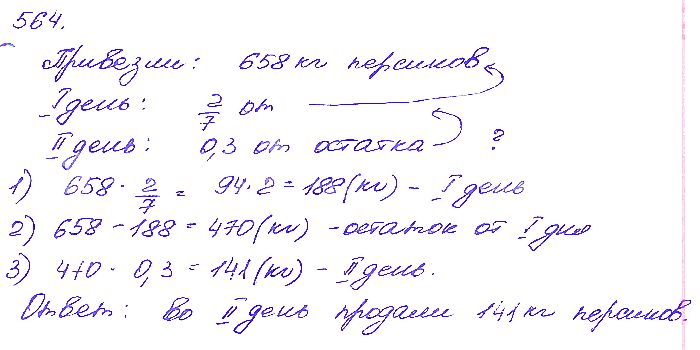 564.
Привезли: 658 кг персиков
I день: 2/7 от
II день: 0,3 от остатка ?
1) 658 · 2/7 = 94 · 2 = 188 (кг) - I день
2) 658 - 188 = 470 (кг) - остаток от I дня
3) 470 · 0,3 = 141 (кг) - II день.
Ответ: во II день продали 141 кг персиков.